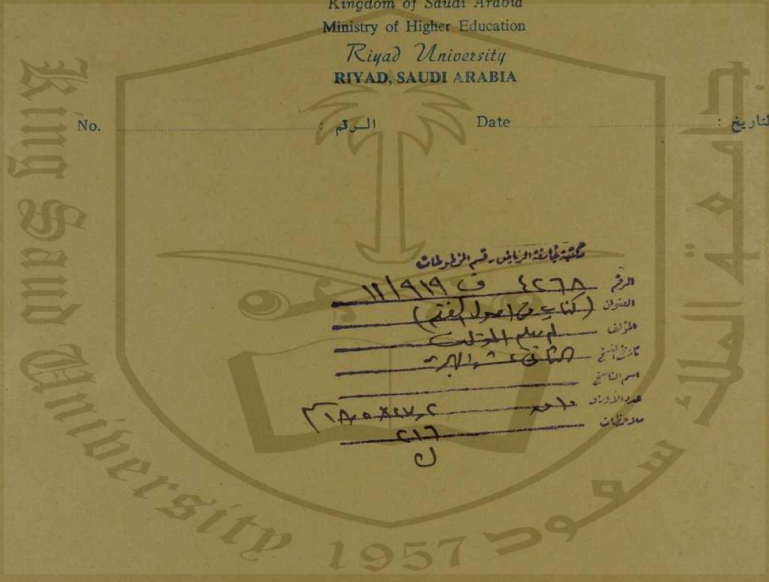 Kingdom of Saudi Arabia
Ministry of Higher Education
Riyad University
RIYAD, SAUDI ARABIA
No. الرقم : Date التاريخ :
مكتبة جامعة الرياض - قسم المخطوطات
الرقم ٤٢٦٨ ف ٩١٩/١٢
العنوان (كتاب في اصول الفقه)
المؤلف لم يعلم المؤلف
تاريخ النسخ الثاني عشر الهجري
اسم الناسخ
عدد الأوراق
ملاحظات ٢١٦
ل
King Saud University
جامعة الملك سعود
1957